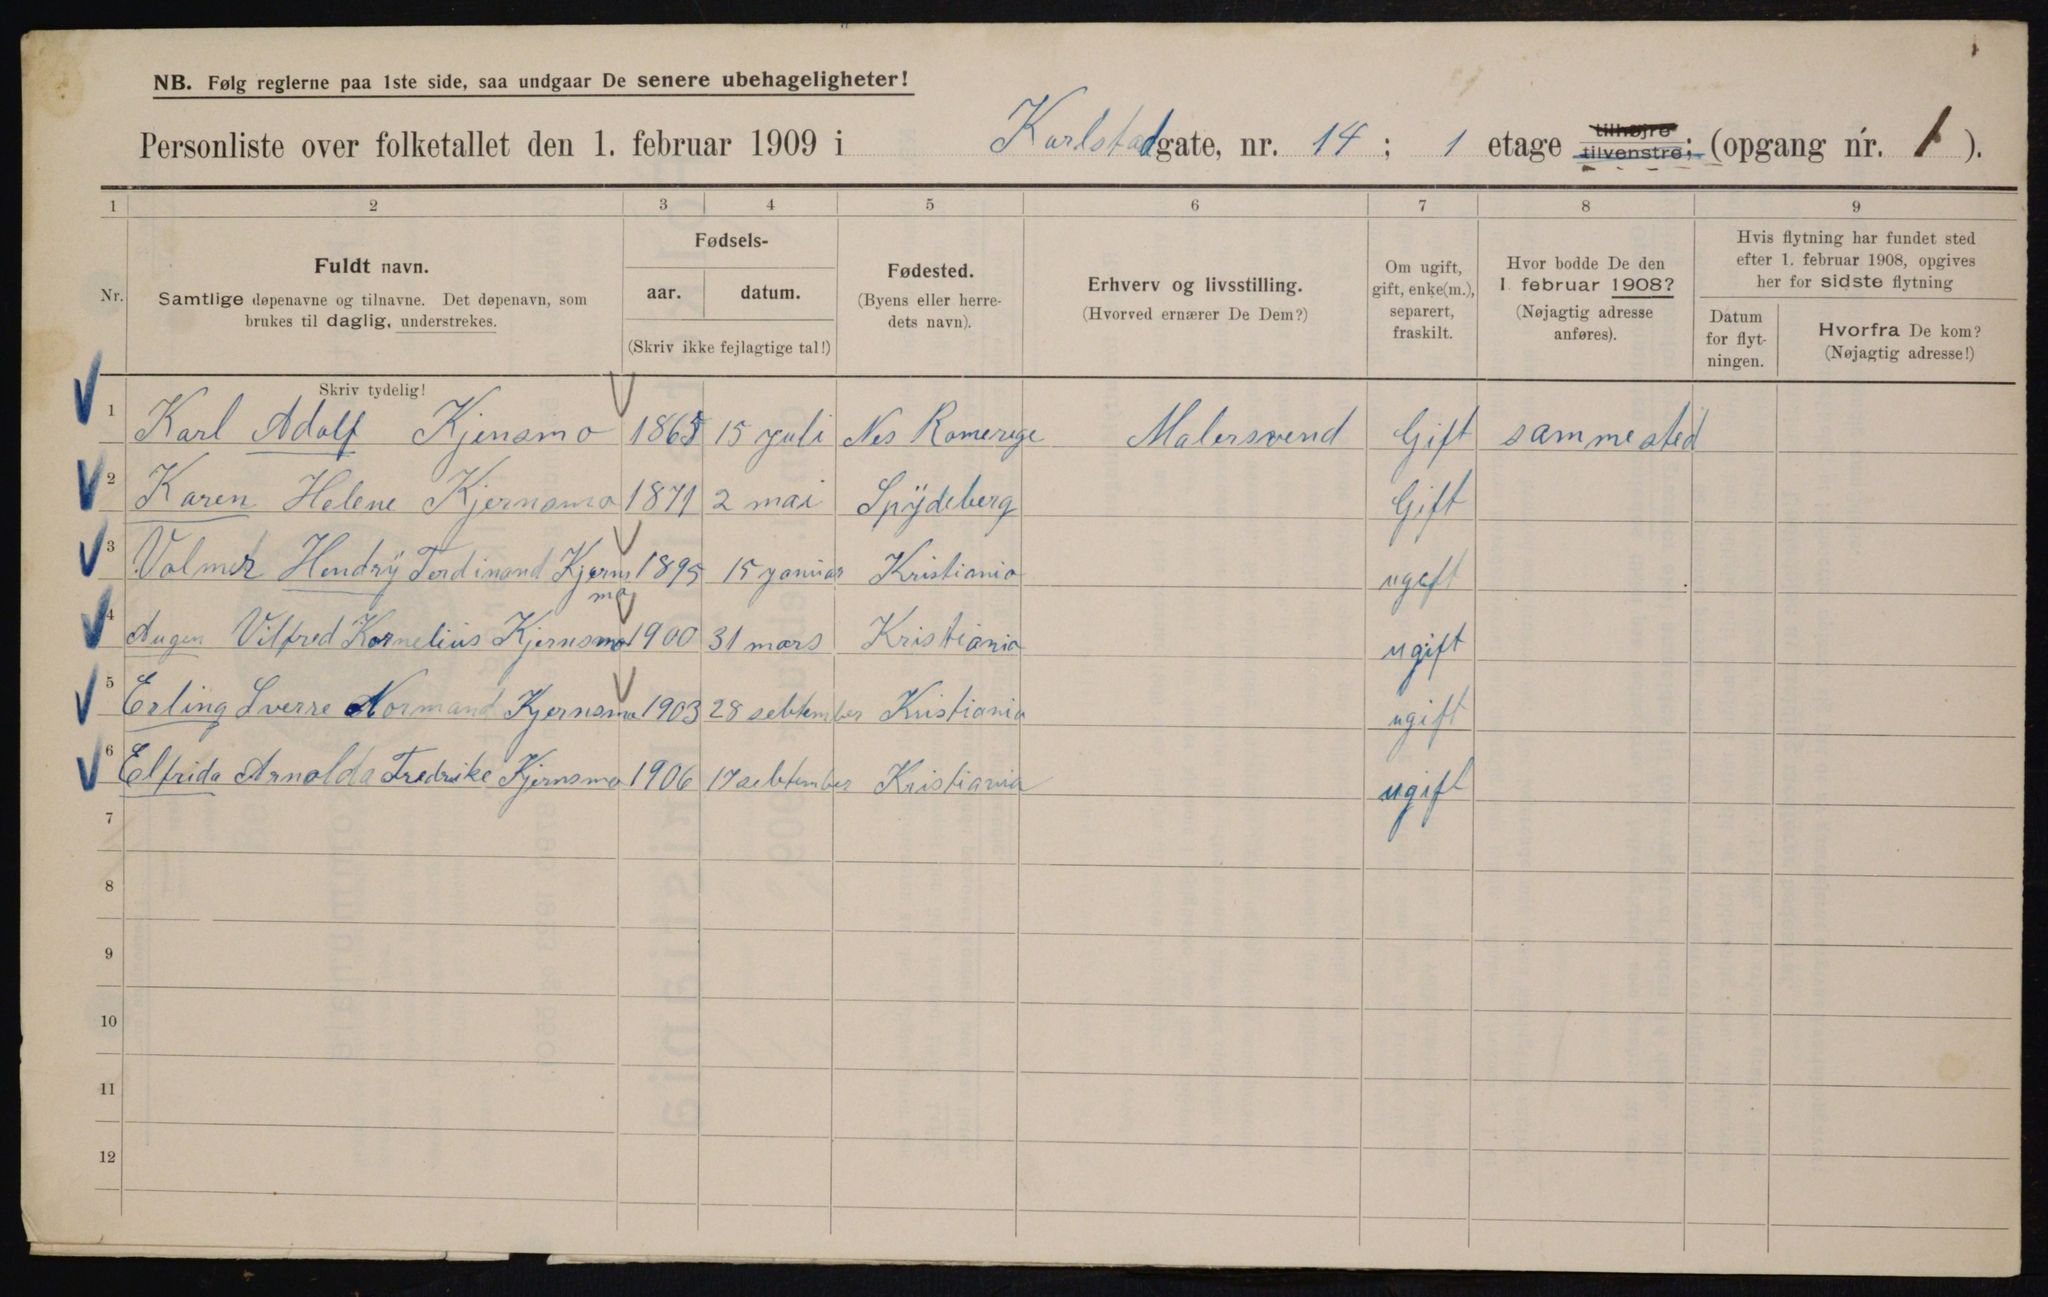 NB. Følg reglerne paa 1ste side, saa undgaar De senere ubehageligheter!
Personliste over folketallet den 1. februar 1909 i Karlstadgate, nr. 14 ; 1 etage tilhøjre tilvenstre; (opgang nr. 1 ).
1 2 3 4 5 6 7 8 9
Nr.
Fuldt navn.
Samtlige døpenavne og tilnavne. Det døpenavn, som
brukes til daglig, understrekes.
Fødsels-
aar. datum.
(Skriv ikke fejlagtige tal!)
Fødested.
(Byens eller herre-
dets navn).
Erhverv og livsstilling.
(Hvorved ernærer De Dem?)
Om ugift,
gift, enke(m.),
separert,
fraskilt.
Hvor bodde De den
1. februar 1908?
(Nøjagtig adresse
anføres).
Hvis flytning har fundet sted
efter 1. februar 1908, opgives
her for sidste flytning
Datum
for flyt-
ningen.
Hvorfra De kom?
(Nøjagtig adresse!)
Skriv tydelig!
1 Karl Adolf Kjensmo 1865 15 juli Nes Romerige Malersvend Gift samme sted
2 Karen Helene Kjernsmo 1871 2 mai Spÿdeberg Gift
3 Volmer Hendrÿ Ferdinand Kjerns 1895 15 januar Kristiania ugift
mo
4 Augen Vilfred Kornelius Kjernsmo 1900 31 mars Kristiania ugift
5 Erling Sverre Normand Kjernsmo 1903 28 sebtember Kristiania ugift
6 Elfrida Arnolda Fredrike Kjernsmo 1906 17 sebtember Kristiania ugift
7
8
9
10
11
12